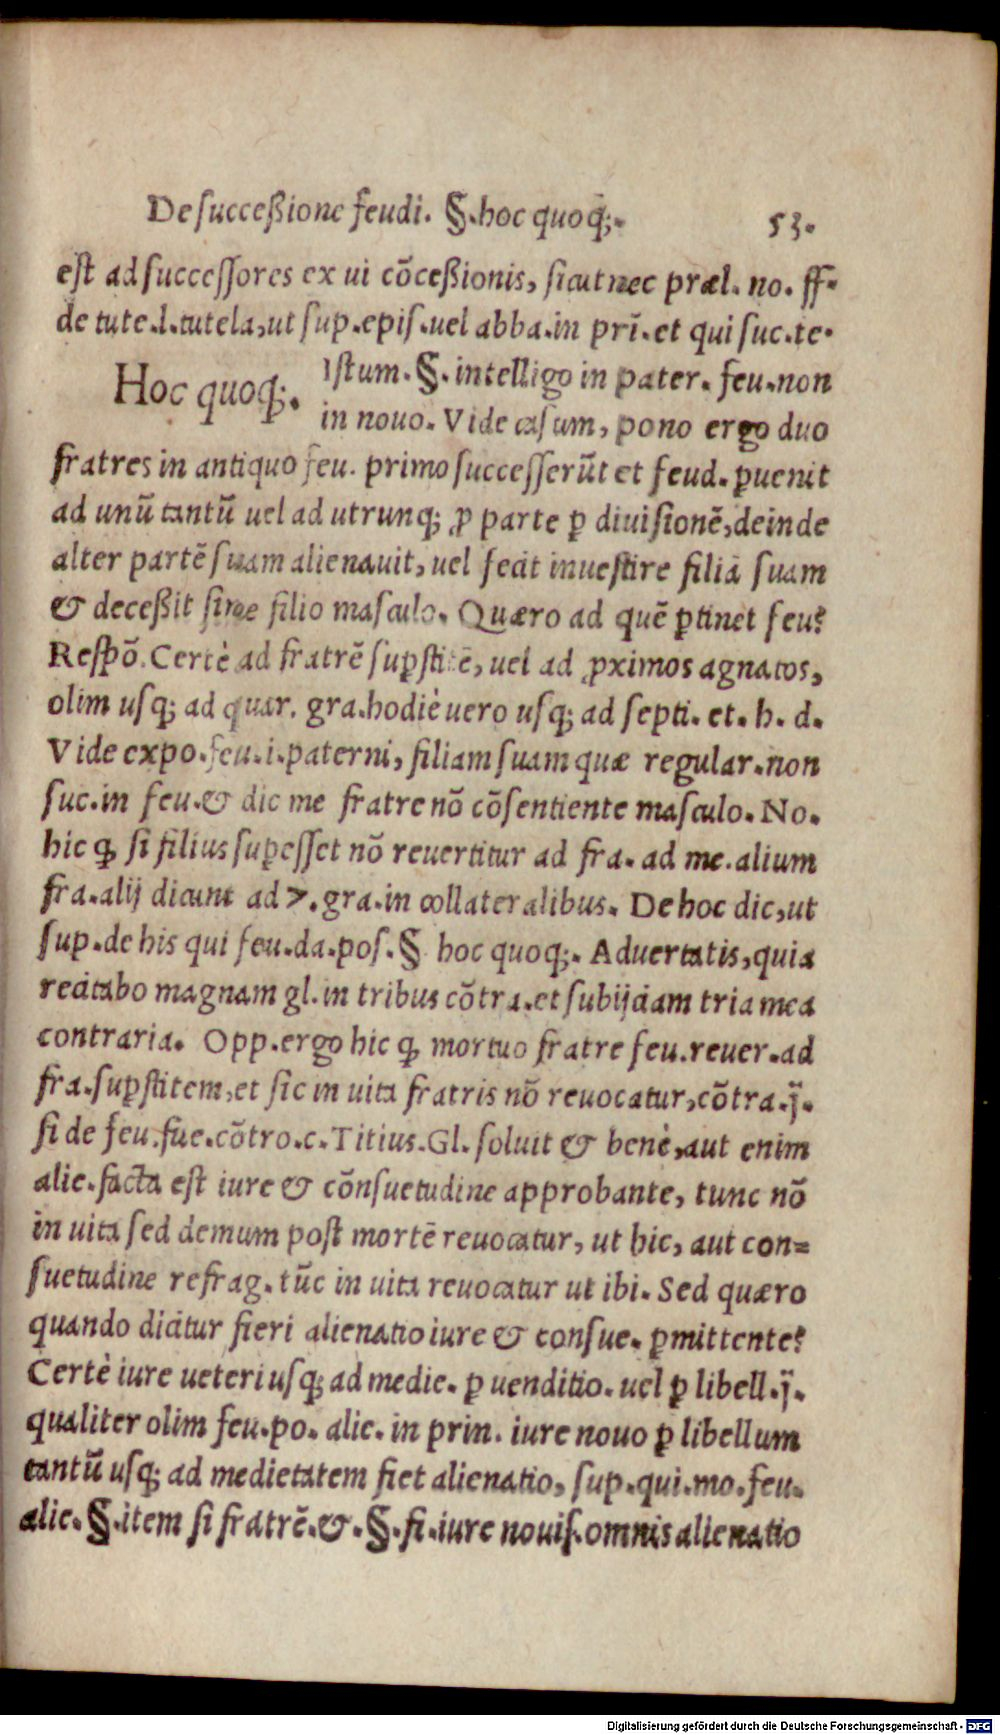 De succeßione feudi. §. hoc quoq;. 53.
est ad successores ex ui cõceßionis, sicut nec præl. no. ff.
de tute.l.tutela,ut sup.epis.uel abba.in prĩ.et qui suc.te.
Hoc quoq;. Istum.§.intelligo in pater. feu.non
in nouo. Vide casum, pono ergo duo
fratres in antiquo feu. primo successerũt et feud. ꝑuenit
ad unũ tantũ uel ad utrunq; ꝓ parte ꝑ diuisionẽ,deinde
alter partẽ suam alienauit, uel fecit inuestire filiã suam
& deceßit sine filio masculo. Quæro ad quẽ ꝑtinet feu?
Respõ. Certè ad fratrẽ suꝑstitẽ, uel ad ꝓximos agnatos,
olim usq; ad quar. gra.hodiè uero usq; ad septi. et. h. d.
Vide expo.feu.i.paterni, filiam suam quæ regular.non
suc.in feu.& dic me fratre nõ cõsentiente masculo. No.
hic ꝙ si filius suꝑesset nõ reuertitur ad fra. ad me.alium
fra.alij dicunt ad 7.gra.in collateralibus. De hoc dic,ut
sup.de his qui feu.da.pos.§ hoc quoq;. Aduertatis,quia
recitabo magnam gl.in tribus cõtra.et subijciam tria mea
contraria. Opp.ergo hic ꝙ mortuo fratre feu.reuer.ad
fra.suꝑstitem,et sic in uita fratris nõ reuocatur,cõtra.ij.
si de feu.fue.cõtro.c.Titius.Gl.soluit & benè,aut enim
alie.facta est iure & cõnsuetudine approbante, tunc nõ
in uita sed demum post mortẽ reuocatur, ut hic, aut con=
suetudine refrag.tũc in uita reuocatur ut ibi. Sed quæro
quando dicitur fieri alienatio iure & consue. ꝑmittente?
Certè iure ueteri usq; ad medie. ꝑ uenditio. uel ꝑ libell.ij.
qualiter olim feu.po. alie. in prin. iure nouo ꝑ libellum
tantũ usq; ad medietatem fiet alienatio, sup.qui.mo.feu.
alie.§.item si fratrẽ.&.§.fi.iure nouis.omnis alienatio
Digitalisierung gefördert durch die Deutsche Forschungsgemeinschaft - DFG